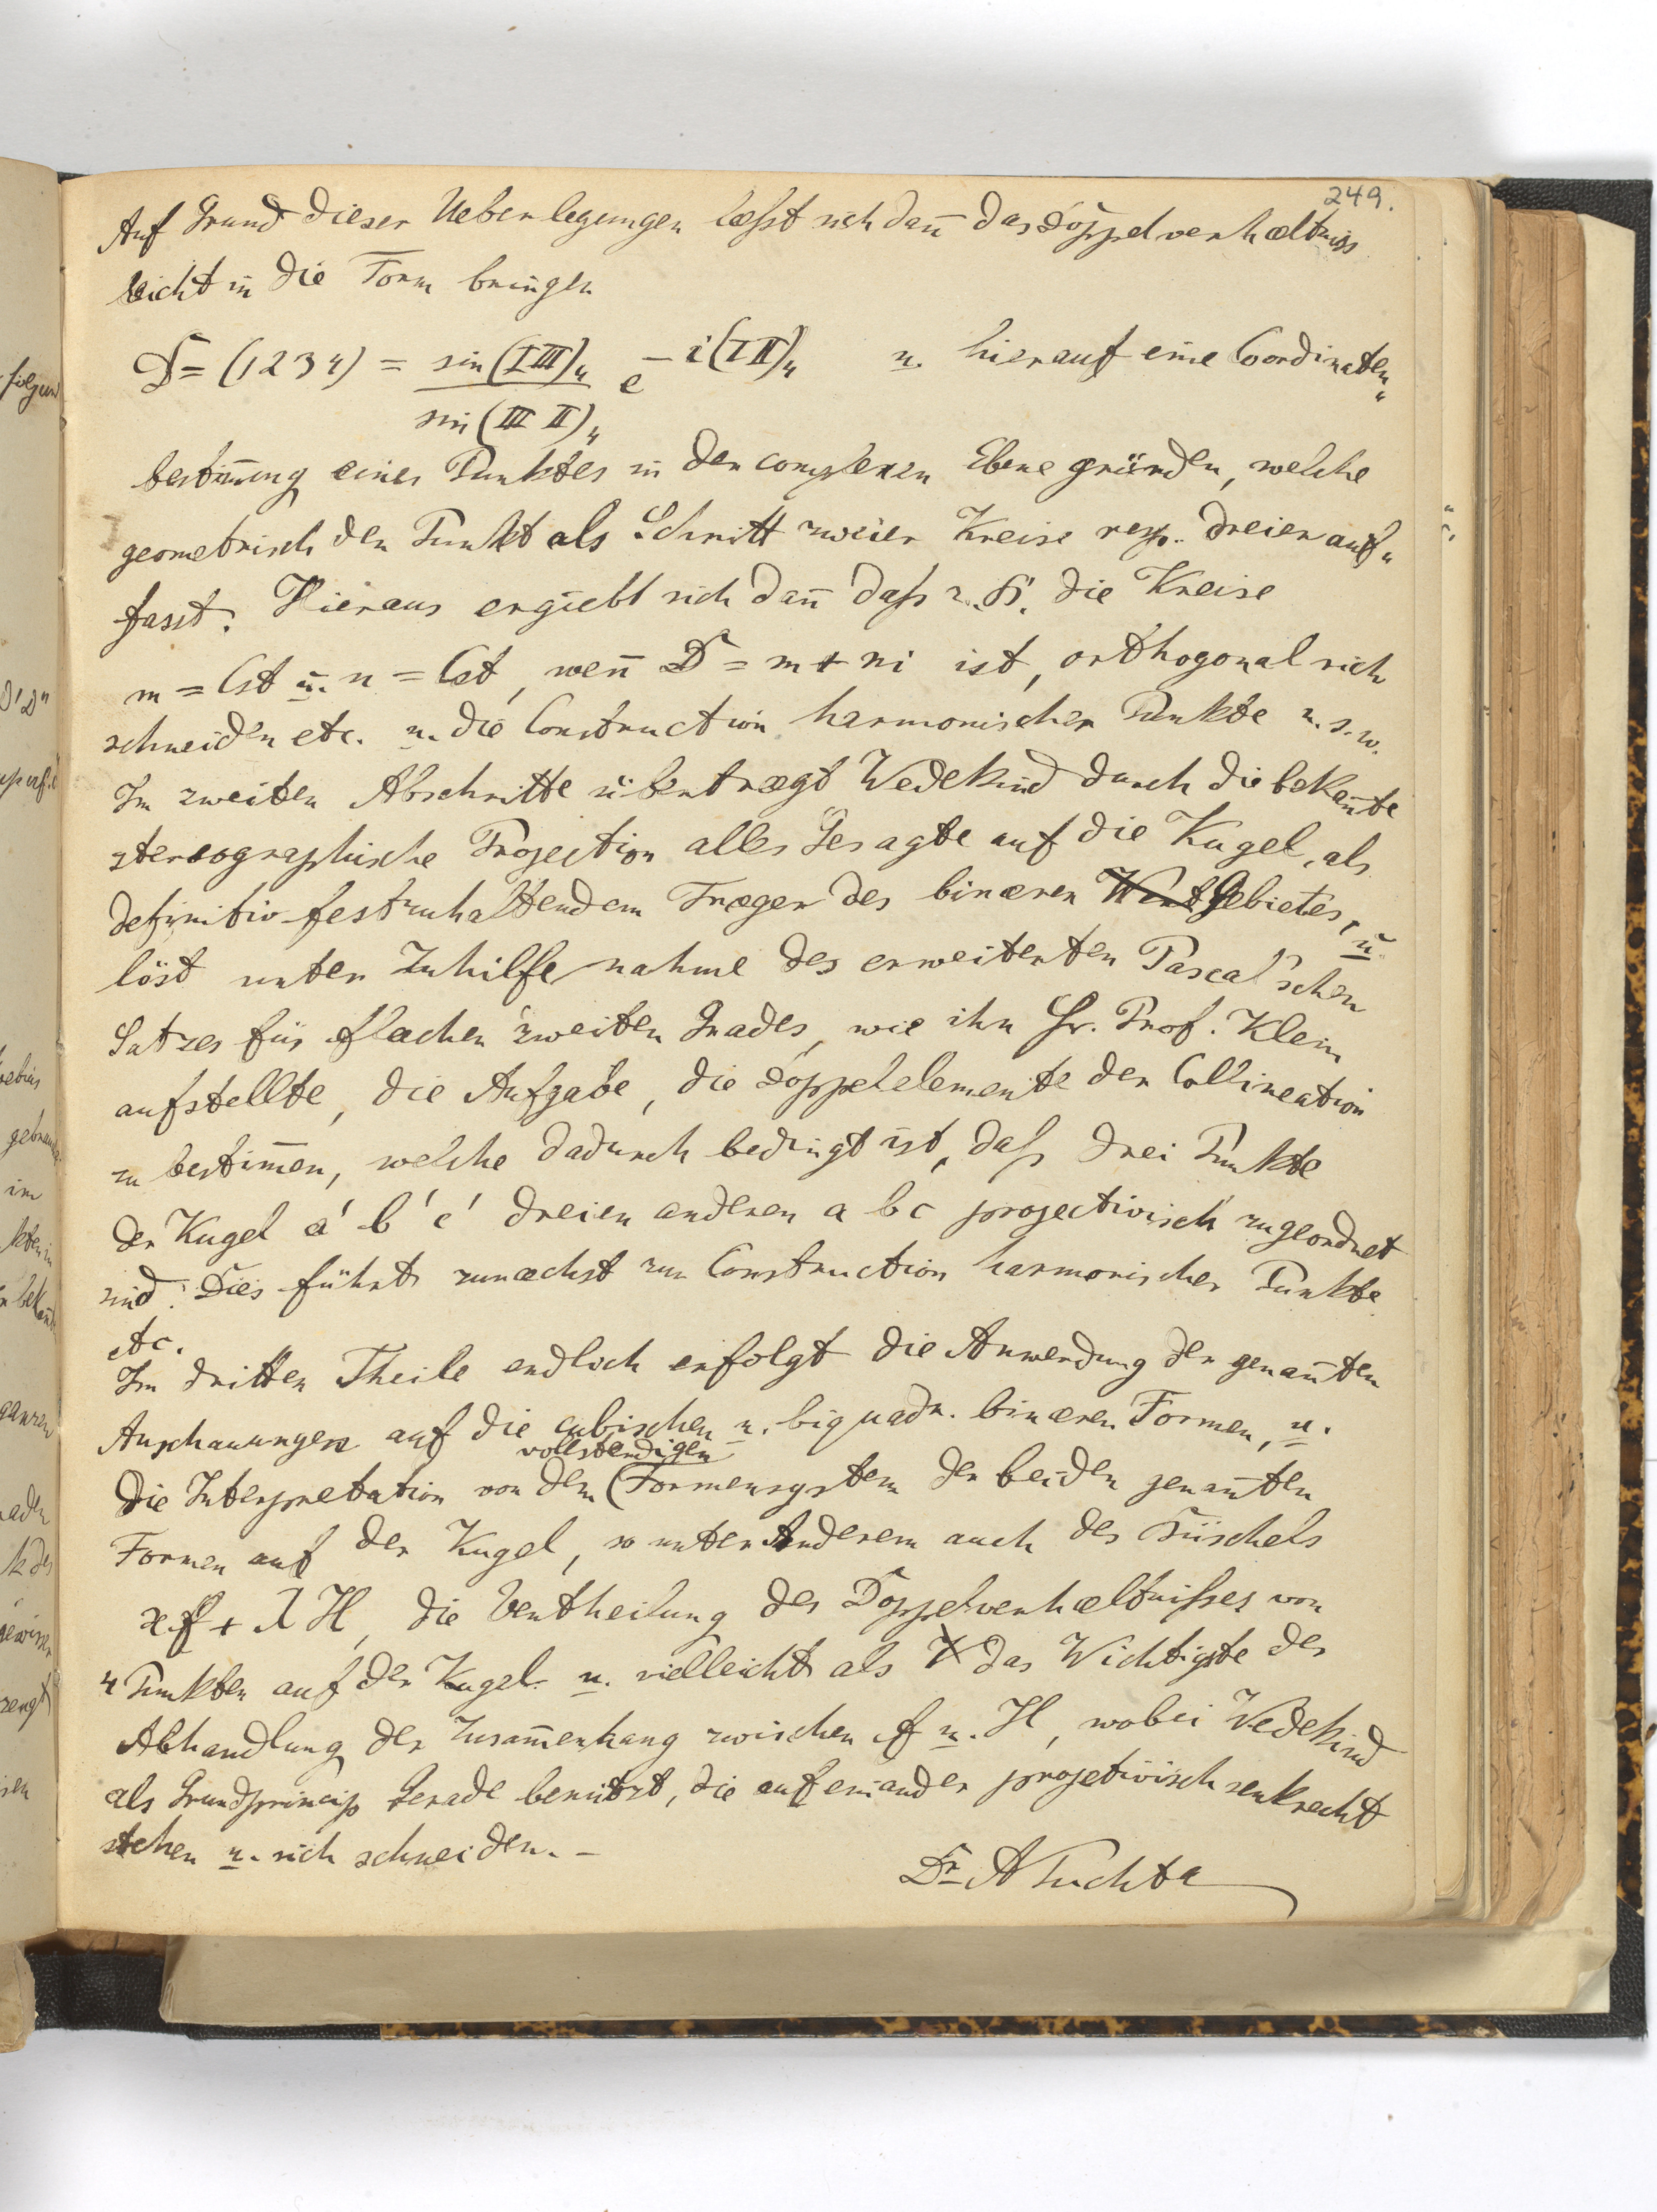 249.
Auf Grund dieser Ueberlegungen læsst sich dan̄ das Doppelverhæltniss
leicht in die Form bringen
D = (1234) = sin (I III)₄ / sin (III II)₄ e^{-i(I II)₄} u. hierauf eine Coordinaten„
bestim̄ung eines Punktes in der complexen Ebene gründen, welche
geometrisch den Punkt als Schnitt zweier Kreise resp. dreier auf„
fasst. Hieraus ergiebt sich dan̄ daſs z. B. die Kreise
m = Cst u. n = Cst, wen̄ D = m + ni ist, orthogonal sich
schneiden etc. u. die Construction harmonischer Punkte u. s. w.
Im zweiten Abschnitte übertrægt Wedekind durch die bekan̄te
stereographische Projection alles Gesagte auf die Kugel, als
definitiv festzuhaltendem Træger des binæren Gebietes, u.
löst unter Zuhilfenahme des erweiterten Pascal'schen
Satzes für Flæchen zweiten Grades, wie ihn Hr. Prof. Klein
aufstellte, die Aufgabe, die Doppelelemente der Collineation
zu bestim̄en, welche dadurch bedingt ist, daſs drei Punkte
der Kugel a' b' c' dreien anderen a b c projectivisch zugeordnet
sind. Dies führt zunæchst zur Construction harmonischer Punkte
etc.
Im dritten Theile endlich erfolgt die Anwendung der genan̄ten
Anschauungen auf die cubischen u. biquadr. binæren Formen, u.
vollstændigen
die Interpretation von dem (Formensystem der beiden genan̄ten
Formen auf der Kugel, so unter Anderem auch des Büschels
ϰf + λH, die Vertheilung des Doppelverhæltniſses von
4 Punkten auf der Kugel u. vielleicht als das Wichtigste der
Abhandlung der Zusam̄enhang zwischen f u. H, wobei Wedekind
als Grundprincip Gerade benützt, die auf einander projetivisch senkrecht
stehen u. sich schneiden. –
Dr A Puchta